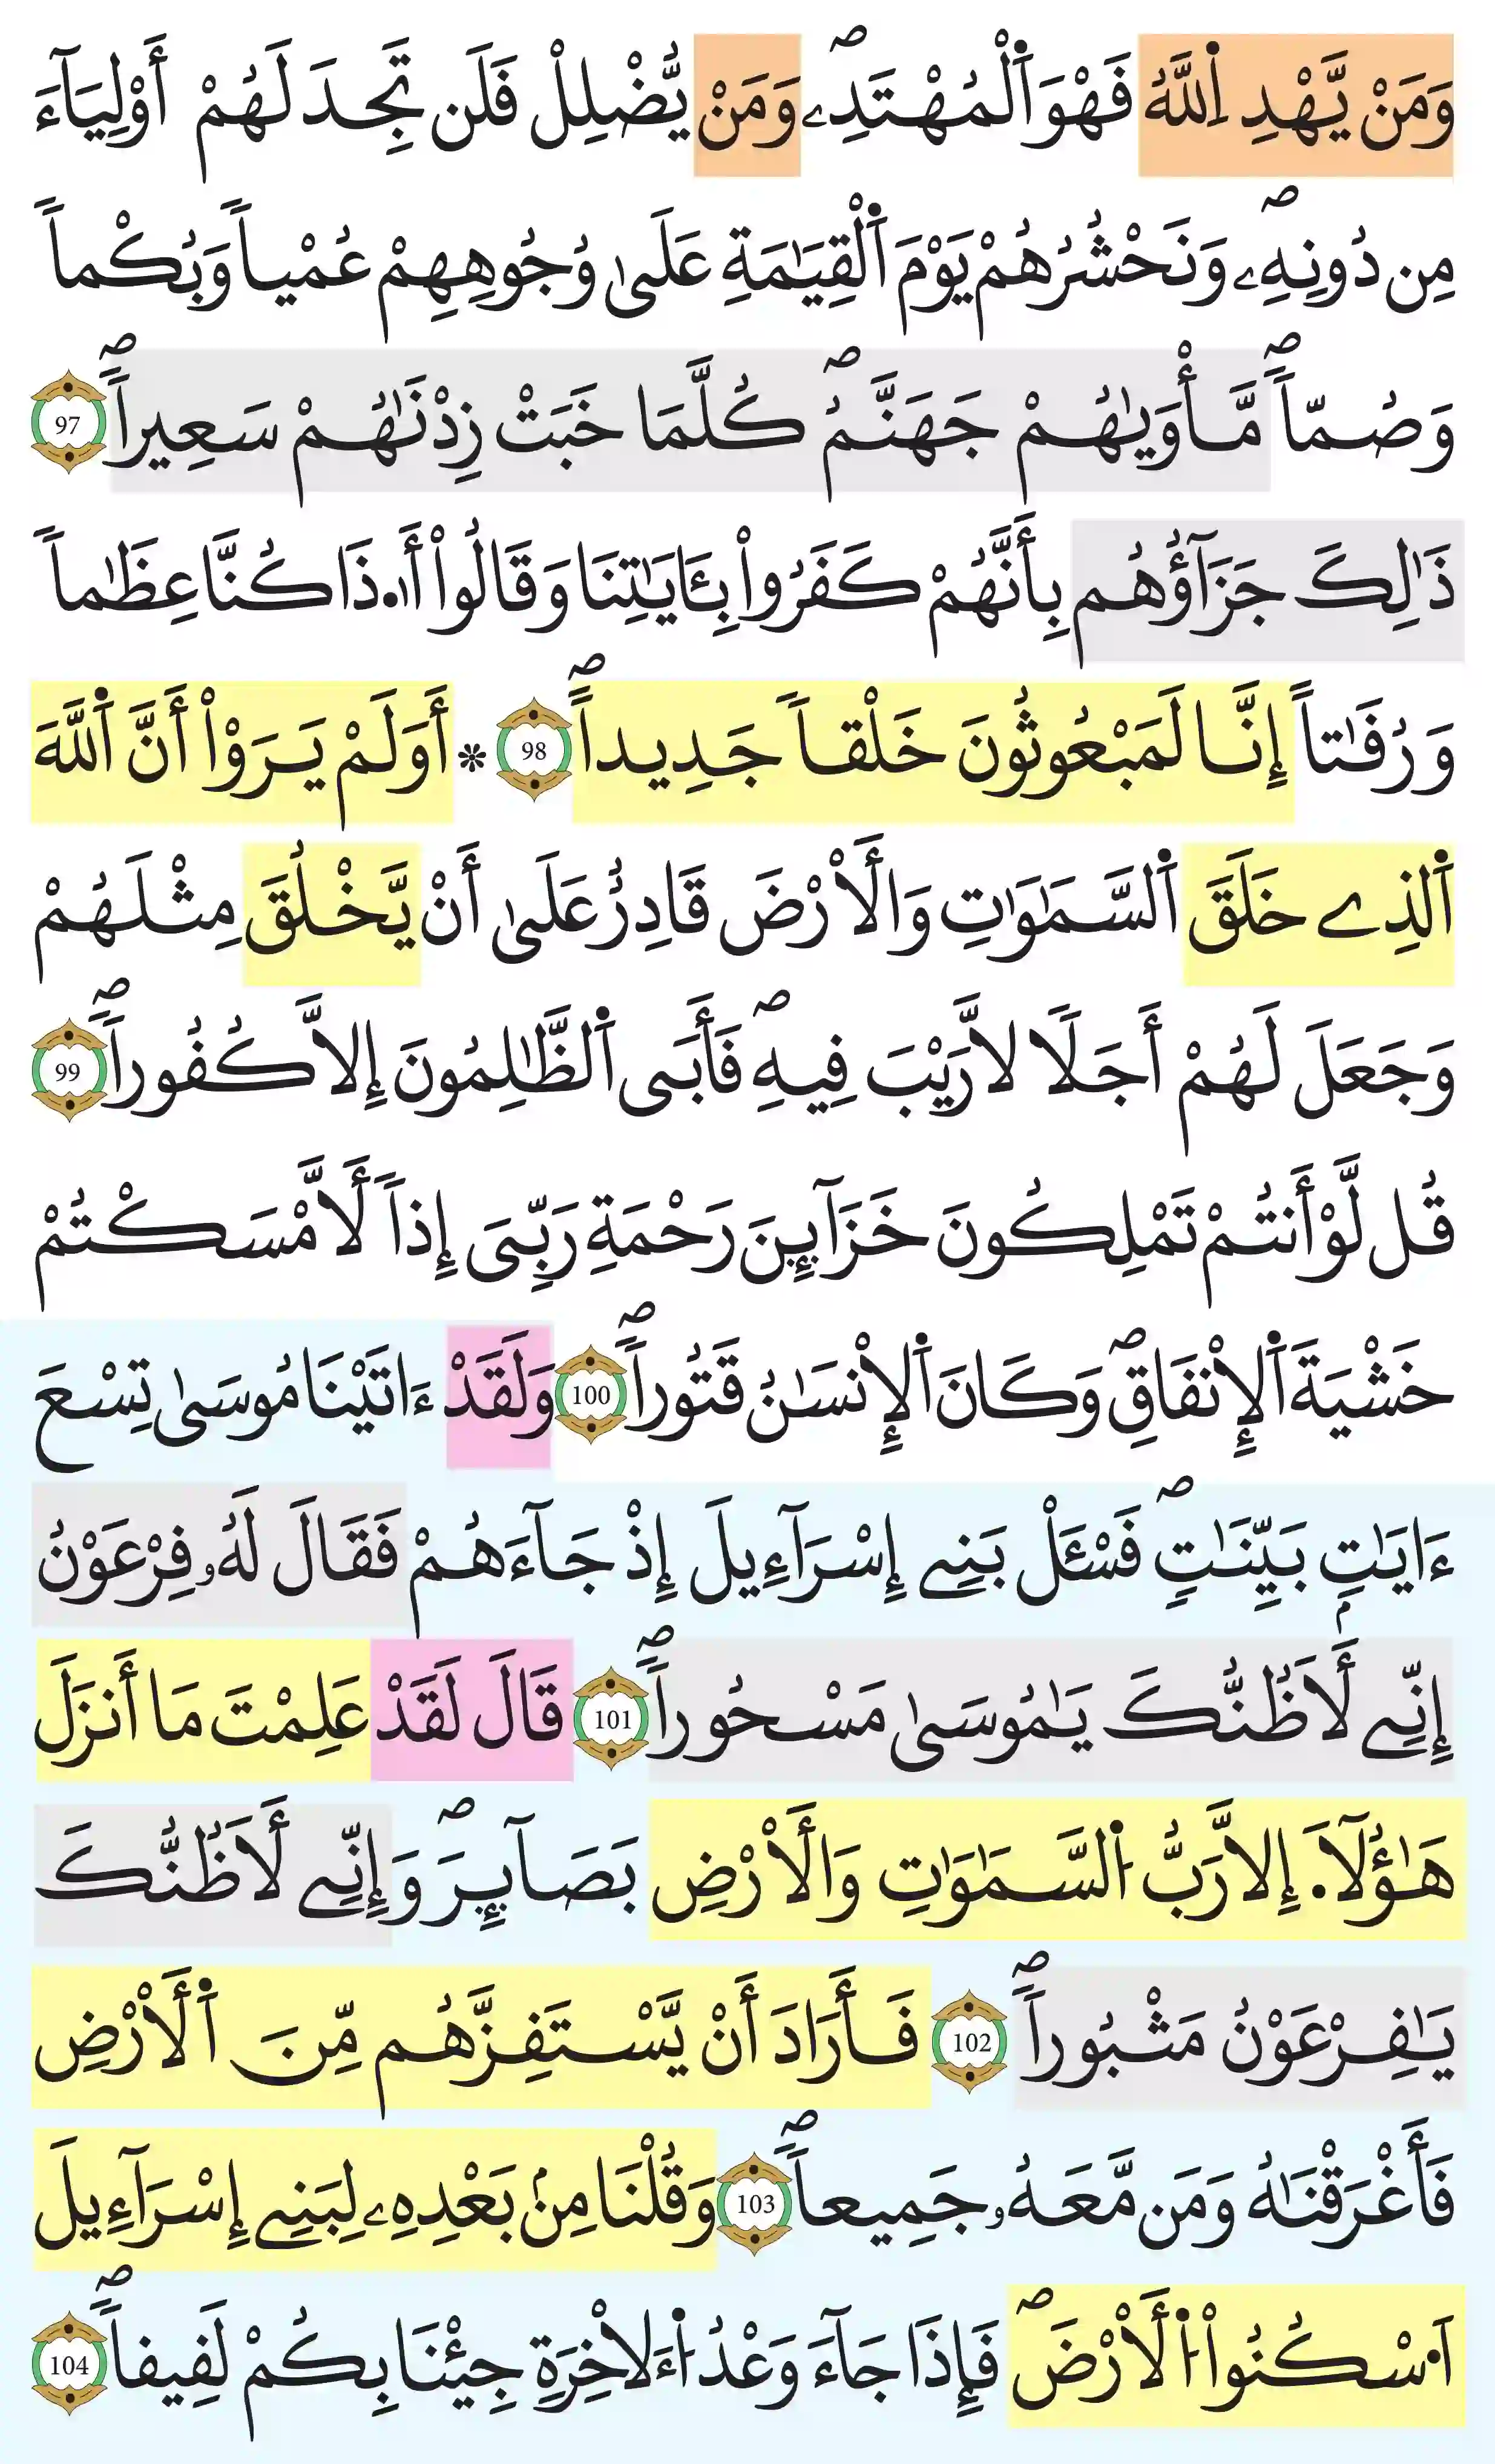 وَمَنْ يَّهْدِ اِ۬للَّهُ فَهْوَ اَ۬لْمُهْتَدِۦۖ وَمَنْ يُّضْلِلْ فَلَن تَجِدَ لَهُمْ أَوْلِيَآءَ
مِن دُونِهِۦۖ وَنَحْشُرُهُمْ يَوْمَ اَ۬لْقِيَٰمَةِ عَلَىٰ وُجُوهِهِمْ عُمْياً وَبُكْماً
وَصُمّاًۖ مَّأْوَيٰهُمْ جَهَنَّمُۖ كُلَّمَا خَبَتْ زِدْنَٰهُمْ سَعِيراًۖ 97
ذَٰلِكَ جَزَآؤُهُم بِأَنَّهُمْ كَفَرُواْ بِـَٔايَٰتِنَا وَقَالُواْ أَ۟ذَا كُنَّا عِظَٰماً
وَرُفَٰتاً إِنَّا لَمَبْعُوثُونَ خَلْقاً جَدِيداًۖ 98 * أَوَلَمْ يَرَوْاْ أَنَّ اَ۬للَّهَ
اَ۬لذِے خَلَقَ اَ۬لسَّمَٰوَٰتِ وَالَارْضَ قَادِرٌ عَلَىٰ أَنْ يَّخْلُقَ مِثْلَهُمْ
وَجَعَلَ لَهُمْ أَجَلًا لاَّ رَيْبَ فِيهِۖ فَأَبَى اَ۬لظَّٰلِمُونَ إِلاَّ كُفُوراًۖ 99
قُل لَّوْ أَنتُمْ تَمْلِكُونَ خَزَآئِنَ رَحْمَةِ رَبِّىَ إِذاً لَّأَمْسَكْتُمْ
خَشْيَةَ اَ۬لِانفَاقِۖ وَكَانَ اَ۬لِانسَٰنُ قَتُوراًۖ 100 وَلَقَدْ ءَاتَيْنَا مُوسَىٰ تِسْعَ
ءَايَٰتِۢ بَيِّنَٰتٍۖ فَسْـَٔلْ بَنِے إِسْرَآءِيلَ إِذْ جَآءَهُمْ فَقَالَ لَهُۥ فِرْعَوْنُ
إِنِّے لَأَظُنُّكَ يَٰمُوسَىٰ مَسْحُوراًۖ 101 قَالَ لَقَدْ عَلِمْتَ مَا أَنزَلَ
هَٰؤُلَآ. إِلاَّ رَبُّ اُ۬لسَّمَٰوَٰتِ وَالَارْضِ بَصَآئِرَۖ وَإِنِّے لَأَظُنُّكَ
يَٰفِرْعَوْنُ مَثْبُوراًۖ 102 فَأَرَادَ أَنْ يَّسْتَفِزَّهُم مِّنَ اَ۬لَارْضِ
فَأَغْرَقْنَٰهُ وَمَن مَّعَهُۥ جَمِيعاًۖ 103 وَقُلْنَا مِنۢ بَعْدِهِۦ لِبَنِے إِسْرَآءِيلَ
اَ۟سْكُنُواْ اُ۬لَارْضَۖ فَإِذَا جَآءَ وَعْدُ اُ۬ءَلاخِرَةِ جِئْنَا بِكُمْ لَفِيفاًۖ 104